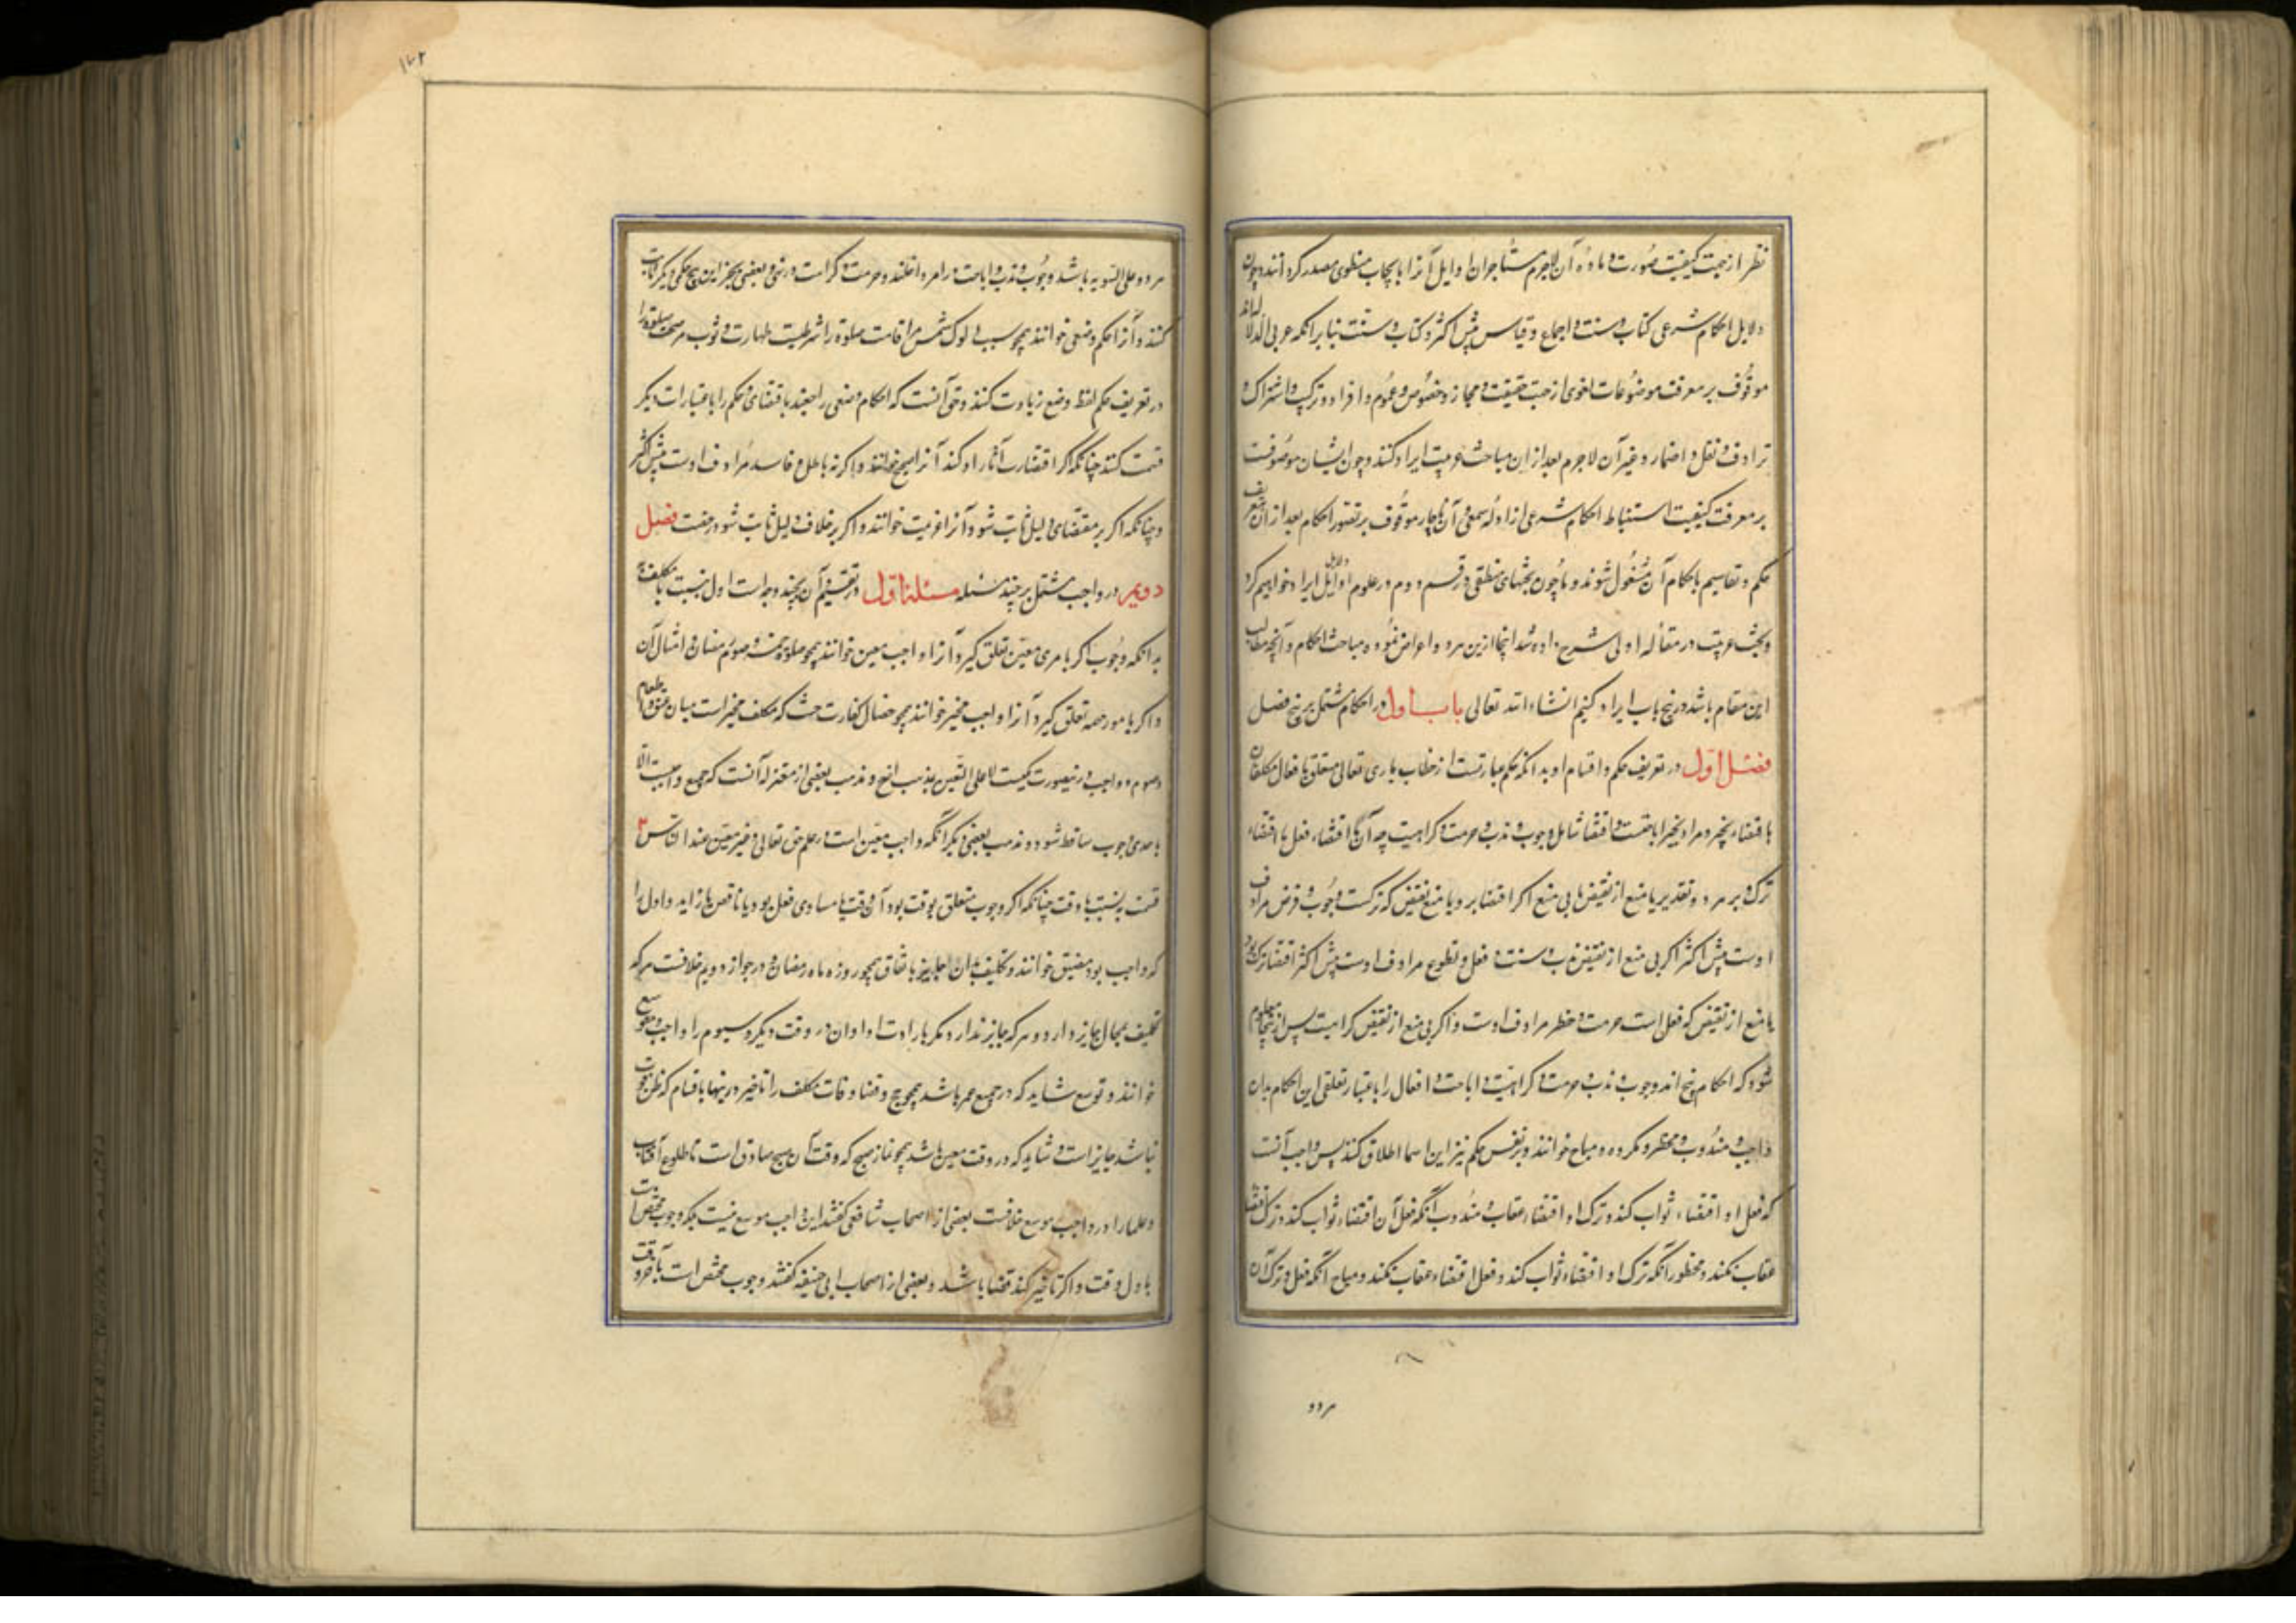 نظر از جهت کیفیت صورت و ماده آن لاجرم متأخران اوایل آنرا بابحاث منطقی مصدر کرده‌اند و چون
دلایل احکام شرعی کتاب و سنت و اجماع و قیاس پیش اکثر و کتاب و سنت بنابر آنکه عربی الدلاله‌اند
موقوف بر معرفت موضوعات لغوی از جهت حقیقت و مجاز و خصوص و عموم و افراد و ترکیب و اشتراک و
ترادف و نقل و اضمار و غیر آن لاجرم بعد از ان مباحث عربیت ایراد کنند و چون ایشان موصوفست
بر معرفت کیفیت استنباط احکام شرعی از ادله سمعی و آن ناچار موقوف بر تصور احکام بعد از ان بتعریف
حکم و تقاسیم باحکام آن مشغول شوند و ما چون بحثهای منطقی در قسم دوم در علوم اوایل ایراد خواهیم کرد
و بحث عربیت در مقاله اولی شرح داده شد اینجا ازین هر دو اعراض نموده مباحث احکام و آنچه مطالب
این مقام باشد در پنج باب ایراد کنیم انشاء الله تعالی باب اول در احکام مشتمل بر پنج فصل
فصل اول در تعریف حکم و اقسام او بدانکه حکم عبارتست از خطاب باری تعالی متعلق بافعال مکلفان
باقتضاء یا تخییر و مراد بتخییر اباحتست و اقتضا شامل وجوب و ندب و حرمت و کراهیت چه آن یا اقتضاء فعل یا اقتضاء
ترک و بر هر دو تقدیر یا منع از نقیض یا بی منع اگر اقتضا بر و با منع نقیض که ترکست وجوب و فرض مرادف
اوست پیش اکثر و اگر بی منع از نقیض ندب و سنت و نفل و تطوع مرادف اوست پیش اکثر و اقتضا ترک بود
با منع از نقیض که فعل است حرمت و حظر مرادف اوست و اگر بی منع از نقیض کراهیت پس ازینجا معلوم
شود که احکام پنج اند وجوب و ندب و حرمت و کراهیت و اباحت و افعال را باعتبار تعلق این احکام بدان
واجب و مندوب و محظور و مکروه و مباح خوانند و بر نفس حکم نیز این اسما اطلاق کنند پس واجب آنست
که فعل او اقتضاء ثواب کند و ترک او اقتضاء عقاب و مندوب آنکه فعل آن اقتضاء ثواب کند و ترک اقتضا
عقاب نکند و محظور آنکه ترک او اقتضاء ثواب کند و فعل اقتضاء عقاب نکند و مباح آنکه فعل و ترک آن
هر دو
۱۷۲
هر دو علی السویه باشد و وجوب و ندب و اباحت در امر داخلند و حرمت و کراهت در نهی و بعضی بجز این پنج حکمی دیگر اثبات
کنند و آنرا حکم وضعی خوانند همچو سببیت دلوک شمس مر اقامت صلوة را و شرطیت طهارت ثوب مر صحت صلوة را
در تعریف حکم لفظ وضع زیادت کنند و حق آنست که احکام وضعی راجعند باقتضای حکم را باعتبارات دیگر
قسمت کنند چنانکه اگر اقتضاء ترتب آثار او کند آنرا صحیح خوانند و اگر نه باطل و فاسد مرادف اوست پیش اکثر
و چنانکه اگر بر مقتضای دلیل ثابت شود آنرا عزیمت خوانند و اگر بر خلاف دلیل ثابت شود رخصت فصل
دویم در واجب مشتمل بر چند مسئله مسئله اول در تقسیم آن بچند وجه است اول بنسبت با مکلف به
بدانکه وجوب اگر بامری معین تعلق گیرد آنرا واجب معین خوانند همچو صلوة خمسه و صوم رمضان و امثال آن
و اگر بامور مبهمه تعلق گیرد آنرا واجب مخیر خوانند همچو خصال کفارت حنث که مکلف مخیر است میان عتق و اطعام
و صوم و واجب درینصورت یکیست لا علی التعیین بمذهب اصح و مذهب بعضی از معتزله آنست که جمیع واجبست الا
باحدی وجوب ساقط شود و مذهب بعضی دیگر آنکه واجب معین است در علم حق تعالی و غیر معین عند الناس ۳
قسمت بنسبت با وقت چنانکه اگر وجوب متعلق بوقت بود آن وقت یا مساوی فعل بود یا ناقص یا زاید و اول را
که واجب بود مضیق خوانند و تکلیف بدان جایز باتفاق همچو روزه ماه رمضان و در جواز دویم خلافست هر که
تکلیف بمحال جایز دارد و هر که جایز ندارد مگر بارادت ادا و ان در وقت دیگر و سیوم را واجب موسع
خوانند و توسع شاید که در جمیع عمر باشد همچو حج و قضاء فوایت مکلف را تاخیر درینها مادام که ظن فوت
نباشد جایز است و شاید که در وقت معین باشد همچو نماز صبح که وقت آن صبح صادق است تا طلوع آفتاب
و علما را در واجب موسع خلافست بعضی از اصحاب شافعی گفتند این واجب موسع نیست بلکه وجوب مختص است
باول وقت و اگر تاخیر کند قضا باشد و بعضی از اصحاب ابی حنیفه گفتند وجوب مختص است بآخر وقت